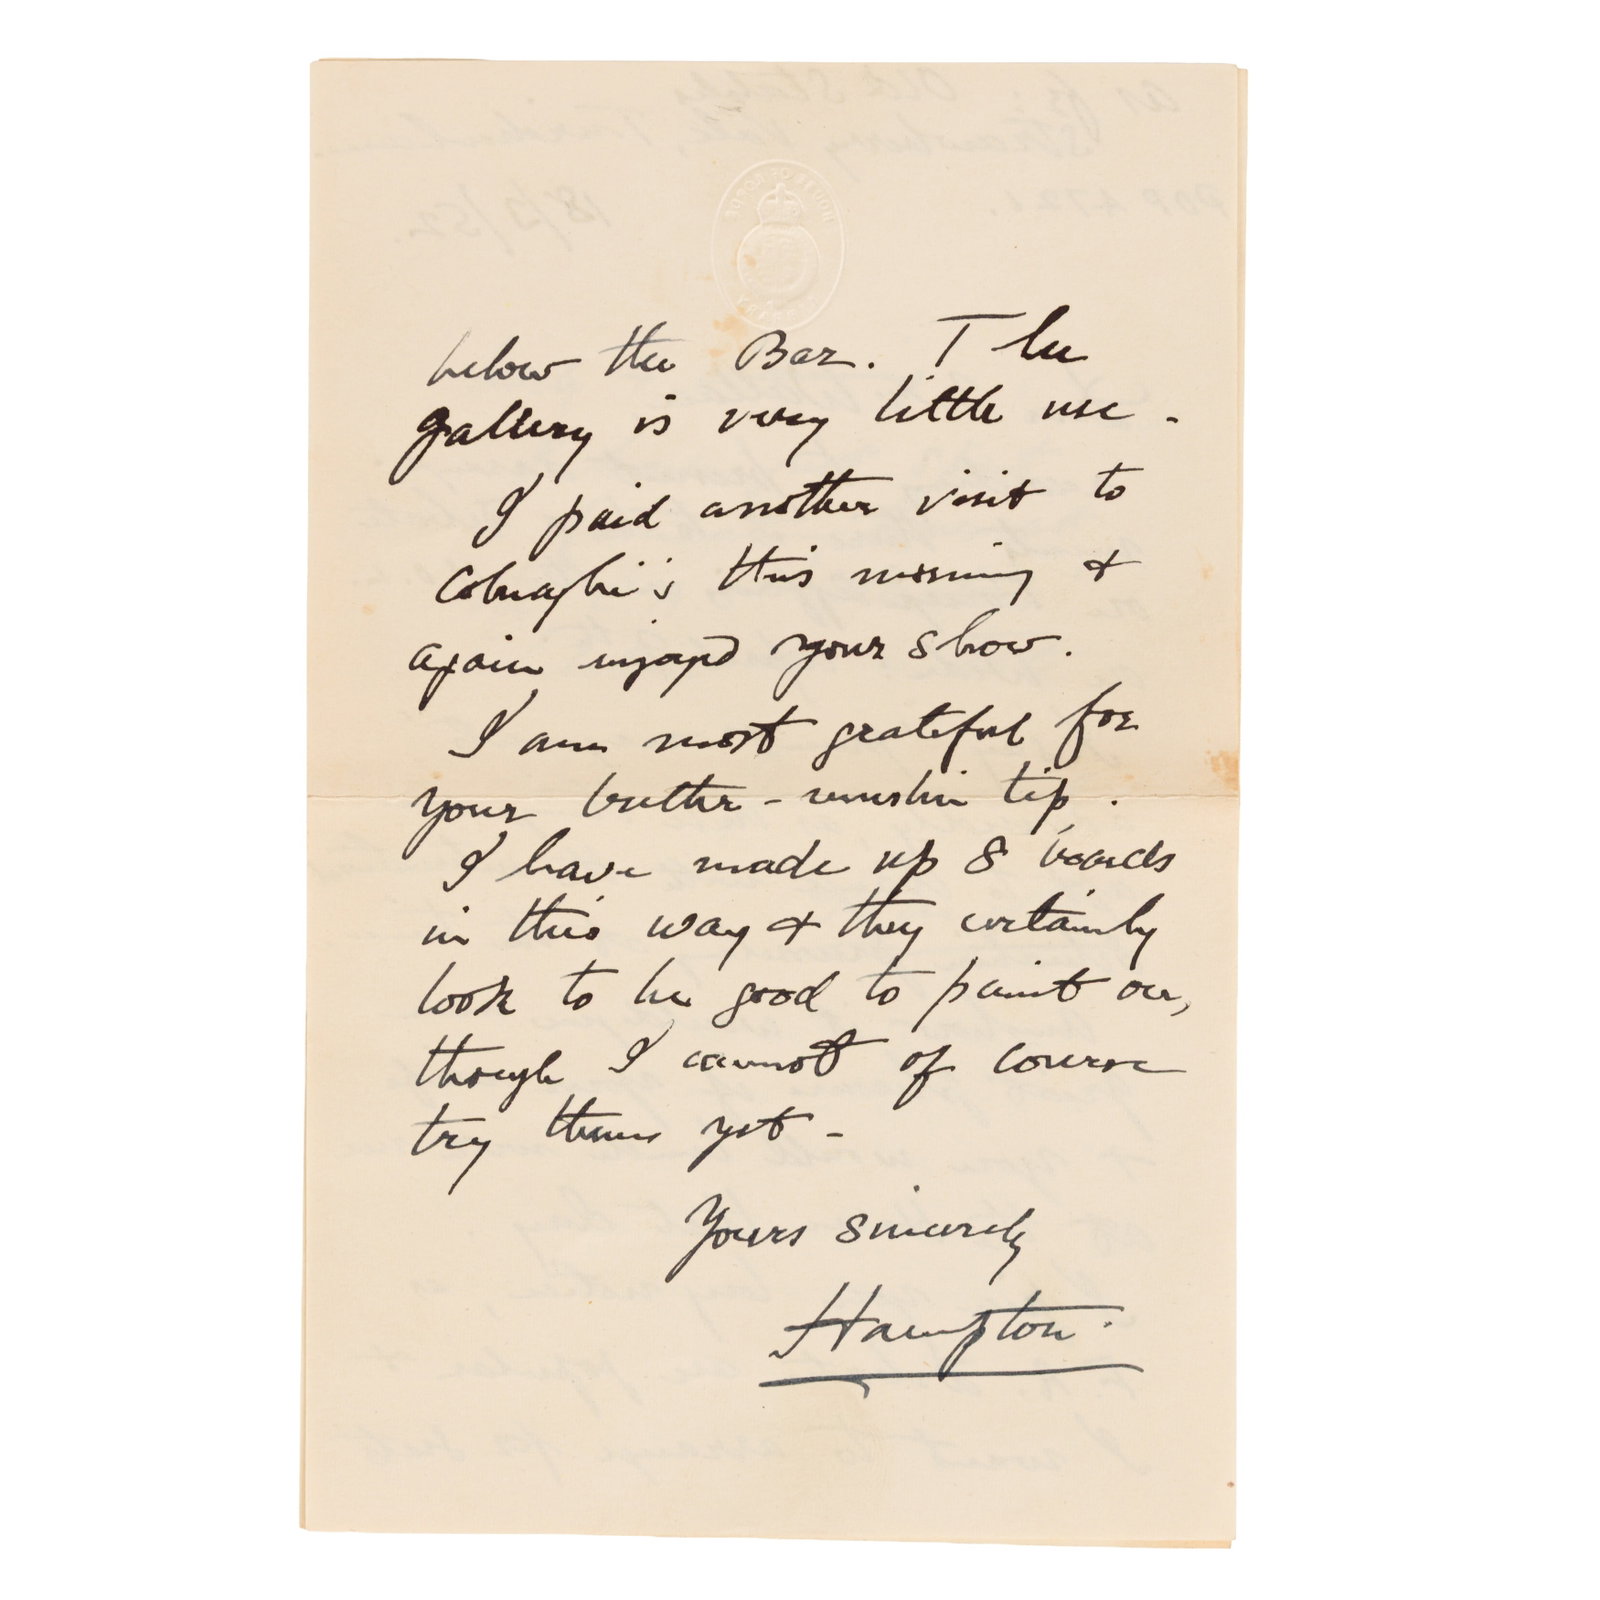 below the Bar. The
gallery is very little use -
I paid another visit to
Colnaghi's this morning &
again enjoyed your show.
I am most grateful for
your butter-muslin tip.
I have made up 8 boards
in this way & they certainly
look to be good to paint on,
though I cannot of course
try them yet -
Yours sincerely
Hampton.